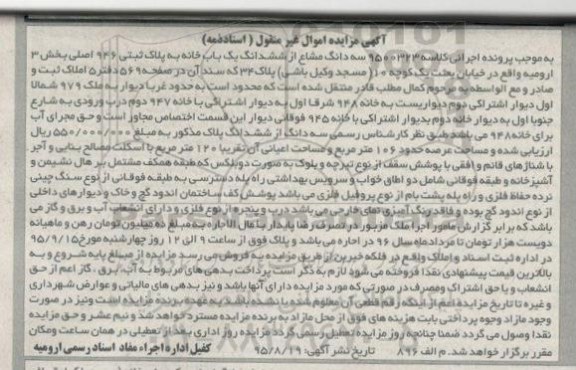 آگهی مزایده اموال غیر منقول (اسناد ذمه)
به موجب پرونده اجرائی کلاسه ۹۵۰۰۳۲۳ سه دانگ مشاع از ششدانگ یک باب خانه به پلاک ثبتی ۹۴۶ اصلی بخش ۳
ارومیه واقع در خیابان بعثت یک کوچه ۱۰ (مسجد وکیل باشی) پلاک ۳۴ که سند آن در صفحه ۵۶۹ دفتر ۵ املاک ثبت و
صادر و مع الواسطه به مرحوم کمال مطلب قادر منتقل شده است که محدود است به حدود غربا دیوار به ملک ۹۷۹ شمالا
اول دیوار اشتراکی دوم دیواریست به خانه ۹۴۸ شرقا اول به دیوار اشتراکی با خانه ۹۴۷ دوم درب ورودی به شارع
جنوبا اول به دیوار خانه دوم بدیوار اشتراکی با خانه ۹۴۵ فوقانی دیوار این قسمت اختصاص مجاور است و حق مجرای آب
برای خانه ۹۴۸ می باشد طبق نظر کارشناس رسمی سه دانگ از ششدانگ پلاک مذکور به مبلغ ۵۵۰/۰۰۰/۰۰۰ ریال
ارزیابی شده و مساحت عرصه حدود ۱۰۶ متر مربع و مساحت اعیانی آن تقریبا ۱۲۰ متر مربع با اسکلت مصالح بنایی و آجر
با شناژهای قائم و افقی با پوشش سقف از نوع تیرچه و بلوک به صورت دوبلکس که طبقه همکف مشتمل بر هال نشیمن و
آشپزخانه و طبقه فوقانی شامل دو اطاق خواب و سرویس بهداشتی راه پله دسترسی به طبقه فوقانی از نوع سنگ چینی
نرده حفاظ فلزی و راه پله پشت بام از نوع پروفیل فلزی می باشد پوشش کف ساختمان اندود گچ و خاک و دیوارهای داخلی
از نوع اندود گچ بوده و فاقد رنگ آمیزی نمای خارجی می باشد درب و پنجره از نوع فلزی و دارای انشعاب آب و برق و گاز می
باشد که برابر گزارش مامور اجرا ملک مزبور در تصرف رضا پایدار با مال الاجاره به مبلغ ده میلیون تومان رهن و ماهیانه
دویست هزار تومان تا مردادماه سال ۹۶ در اجاره می باشد و پلاک فوق از ساعت ۹ الی ۱۲ روز چهارشنبه مورخ ۹۵/۹/۱۵
در اداره ثبت اسناد و املاک واقع در فلکه خیرین از طریق مزایده به فروش می رسد مزایده از مبلغ پایه شروع و به
بالاترین قیمت پیشنهادی نقدا فروخته می شود لازم به ذکر است پرداخت بدهی های مربوط به آب، برق، گاز اعم از حق
انشعاب و یا حق اشتراک و مصرف در صورتی که مورد مزایده دارای آنها باشد و نیز بدهی های مالیاتی و عوارض شهرداری
و غیره تا تاریخ مزایده اعم از اینکه رقم قطعی آن معلوم شده یا نشده باشد به عهده برنده مزایده است و نیز در صورت
وجود مازاد وجوه پرداختی بابت هزینه های فوق از محل مازاد به برنده مزایده مسترد خواهد شد و نیم عشر و حق مزایده
نقدا وصول می گردد ضمنا چنانچه روز مزایده تعطیل رسمی گردد مزایده روز اداری بعد از تعطیلی در همان ساعت و مکان
مقرر برگزار خواهد شد. م الف ۸۹۶ تاریخ نشر آگهی: ۹۵/۸/۱۹ کفیل اداره اجراء مفاد اسناد رسمی ارومیه